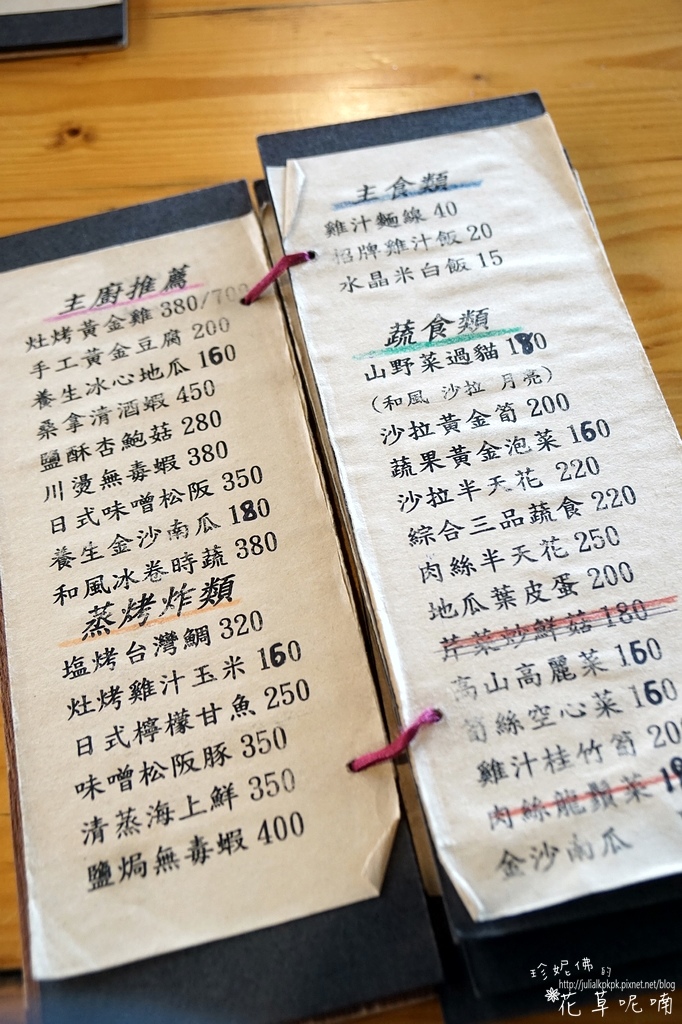 主廚推薦
灶烤黃金雞 380/700
手工黃金豆腐 200
養生冰心地瓜 160
桑拿清酒蝦 450
鹽酥杏鮑菇 280
川燙無毒蝦 380
日式味噌松阪 350
養生金沙南瓜 180
和風冰卷時蔬 380
蒸烤炸類
塩烤台灣鯛 320
灶烤雞汁玉米 160
日式檸檬甘魚 250
味噌松阪豚 350
清蒸海上鮮 350
鹽焗無毒蝦 400
主食類
雞汁麵線 40
招牌雞汁飯 20
水晶米白飯 15
蔬食類
山野菜過貓 180
(和風 沙拉 月亮)
沙拉黃金筍 200
蔬果黃金泡菜 160
沙拉半天花 220
綜合三品蔬食 220
肉絲半天花 250
地瓜葉皮蛋 200
芹菜炒鮮菇 180
高山高麗菜 160
筍絲空心菜 160
雞汁桂竹筍 200
肉絲龍鬚菜 18
金沙南瓜
珍妮佛的
http://julialkpkpk.pixnet.net/blog
花草呢喃